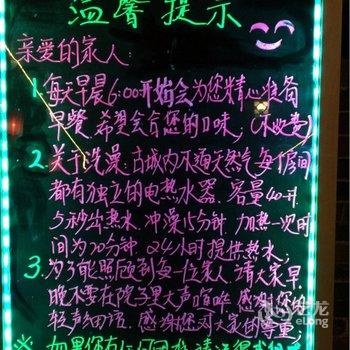 温馨提示
亲爱的家人:
1. 每天早晨6:00开始会为您精心准备
早餐.希望会合您的口味,(不收费)
2. 关于洗澡.古城内不通天然气每个房间
都有独立的电热水器.容量40升.
5秒出热水.冲澡15分钟.加热一次时
间为20分钟.24小时提供热水,
3. 为了能照顾到每一位家人.请大家早
晚不要在院子里大声喧哗.感谢您的
轻声细语.感谢您对大家的尊重,
※ 如果您有任何困难请
艺龙
eLong.com